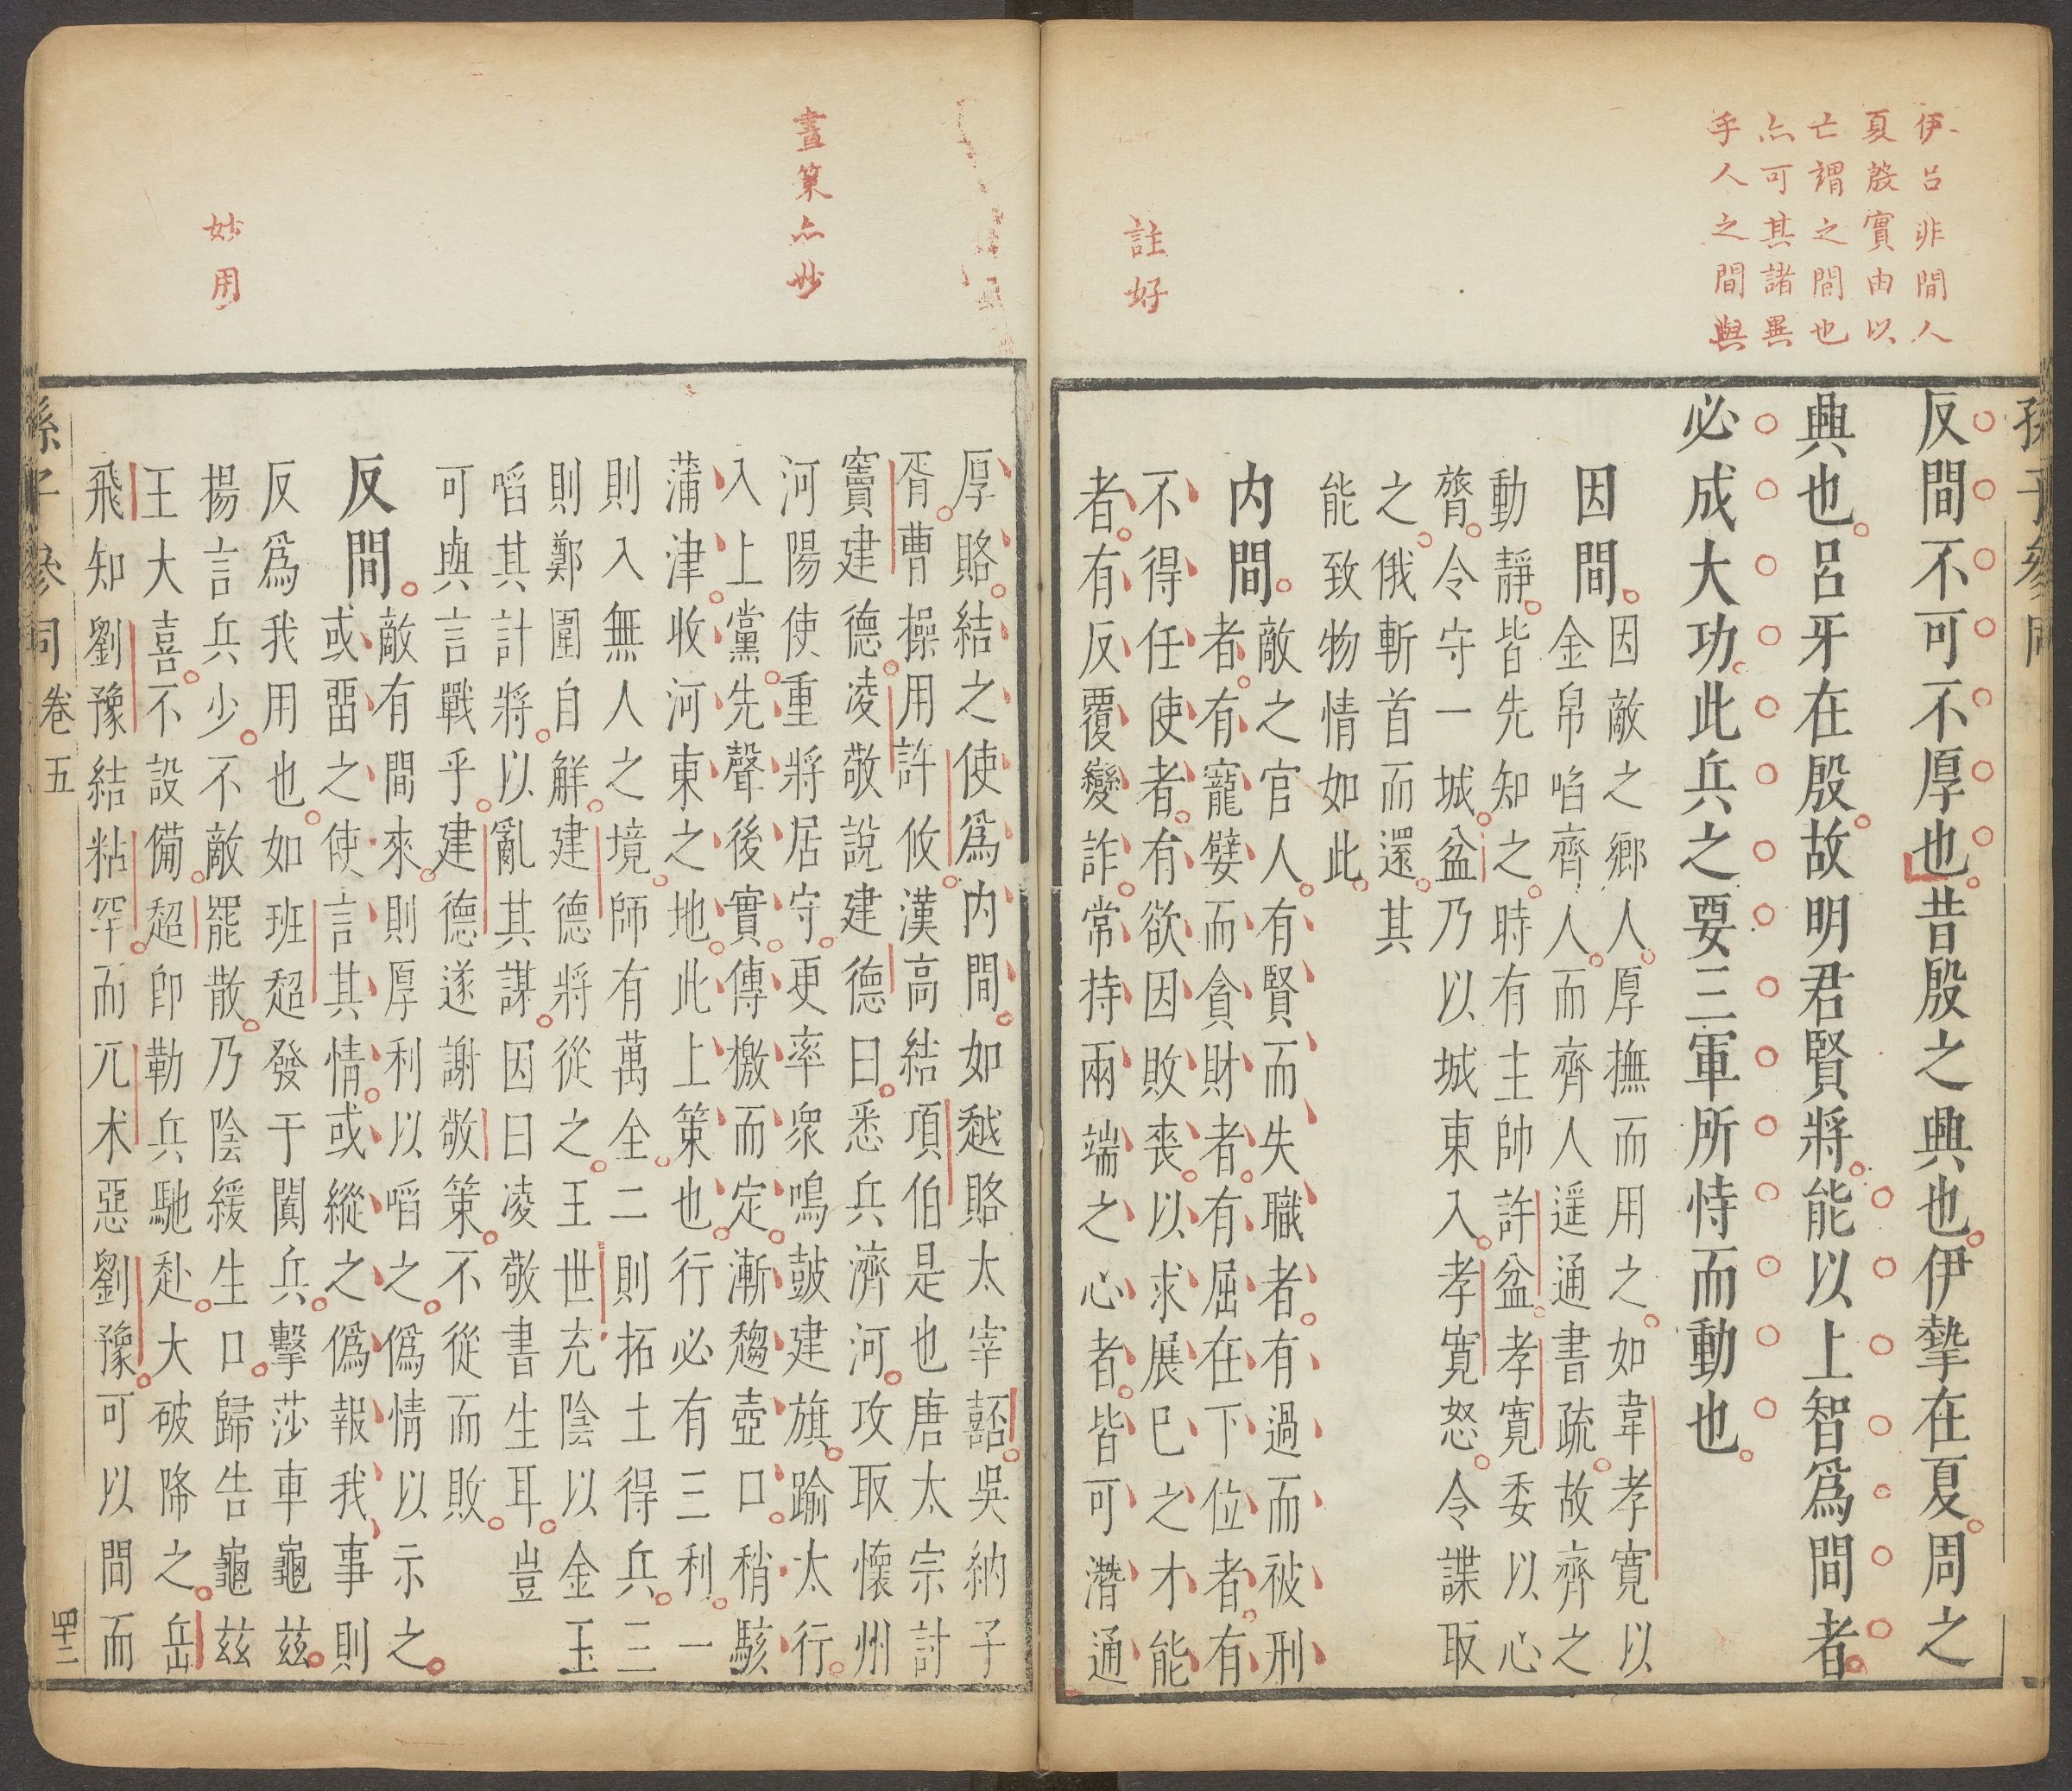 伊呂非間人
夏殷實由以
亡謂之間也
亦可其諸異
乎人之間與
註好
反間不可不厚也昔殷之興也伊摯在夏周之
興也呂牙在殷故明君賢將能以上智爲間者
必成大功此兵之要三軍所恃而動也
因間因敵之鄉人厚撫而用之如韋孝寬以
金帛啗齊人而齊人遥通書疏故齊之
動靜皆先知之時有主帥許盆孝寬委以心
膂令守一城盆乃以城東入孝寬怒令諜取
之俄斬首而還其
能致物情如此
内間敵之官人有賢而失職者有過而被刑
者有寵嬖而貪財者有屈在下位者有
不得任使者有欲因敗喪以求展巳之才能
者有反覆變詐常持兩端之心者皆可潛通
畫策亦妙
妙用
厚賂結之使爲内間如越賂太宰嚭吳納子
胥曹操用許攸漢高結項伯是也唐太宗討
竇建德凌敬說建德曰悉兵濟河攻取懷州
河陽使重將居守更率衆鳴鼓建旗踰太行
入上黨先聲後實傳檄而定漸趨壺口稍駭
蒲津收河東之地此上策也行必有三利一
則入無人之境師有萬全二則拓土得兵三
則鄭圍自解建德將從之王世充陰以金玉
啗其計將以亂其謀因曰凌敬書生耳豈
可與言戰乎建德遂謝敬策不從而敗
反間敵有間來則厚利以啗之僞情以示之
或畱之使言其情或縱之僞報我事則
反爲我用也如班超發于闐兵擊莎車龜茲
揚言兵少不敵罷散乃陰緩生口歸告龜茲
王大喜不設備超卽勒兵馳赴大破降之岳
飛知劉豫結粘罕而兀术惡劉豫可以間而
孫子參同卷五
四十二